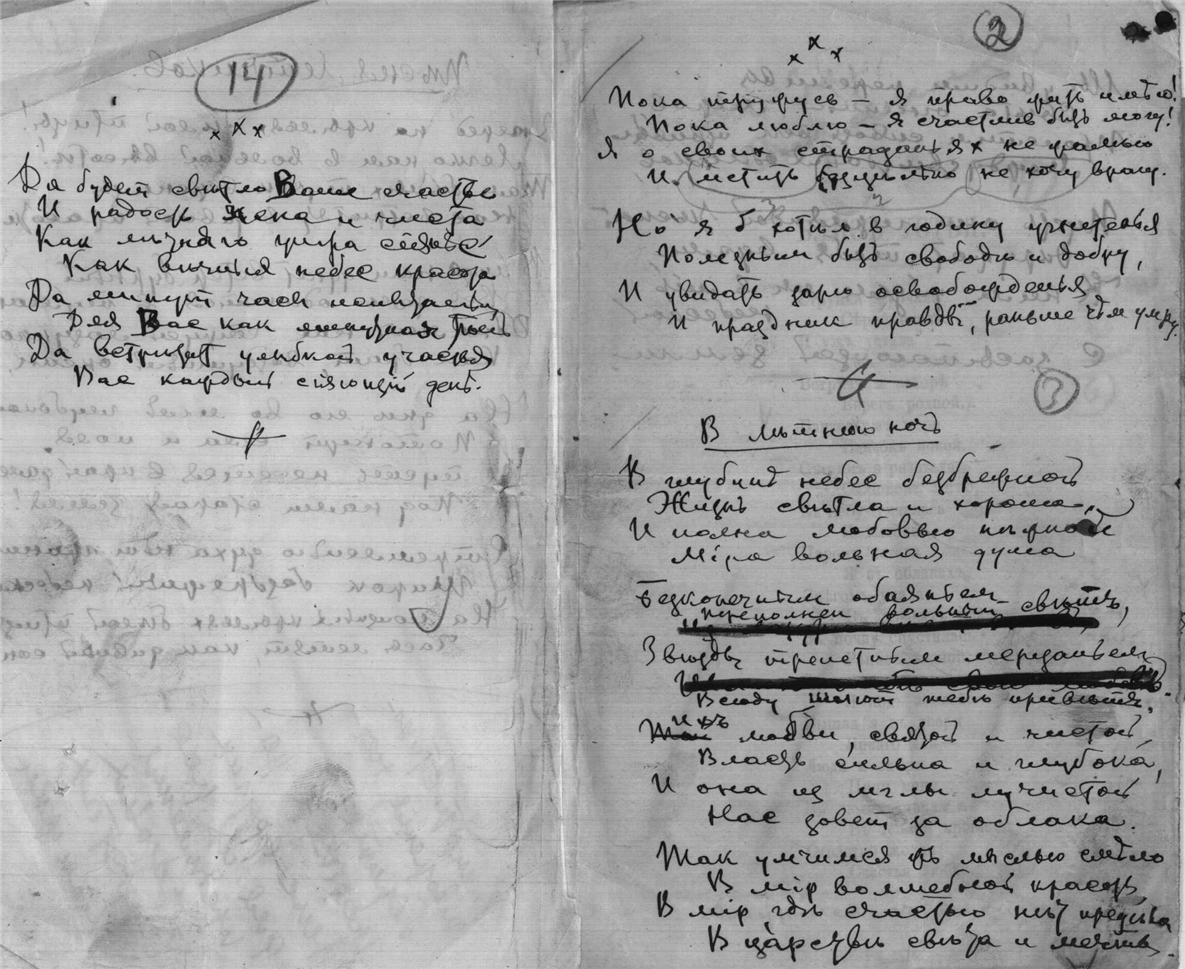 14
х х х
Да будет свѣтло Ваше счастье
И радость ясна и чиста
Как лѣтняго утра сіянье
Как вѣчная небес красота
Да минут часы ненастья
Для Вас как минутная тѣнь
Да встрѣчает улыбкой участья
Вас каждый сіяющій день.
2
х х х
Пока тружусь – я право жить имѣю!
Пока люблю – я счастлив быть могу!
Я о своих страданьях не жалѣю
И мстить безцѣльно не хочу врагу.
Но я б хотѣл в годину угнетенья
Полезным быть свободѣ и добру,
И увидать зарю освобожденья
И праздник правды, раньше чѣм умру.
3
В лѣтнюю ночь
В глубинѣ небес безбрежной
Жизнь свѣтла и хороша,
И полна любовью нѣжной
Міра вольная душа
Безконечным обаяньем
преисполнен вольный свѣт,
Звѣзды трепетным мерцаньем
Всюду шлют тебѣ привѣт.
их любви, святой и чистой,
Власть сильна и глубока,
И она из мглы лучистой
Нас зовет за облака.
Так умчимся мыслью смѣло
В мір волшебной красоты,
В мір, гдѣ счастью нѣт предѣла
В царствѣ свѣта и мечты.